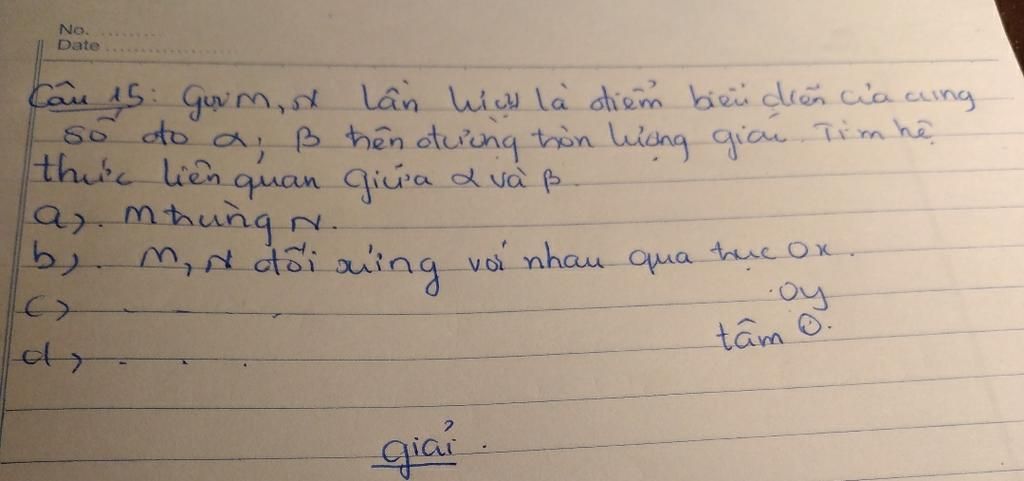 No. ..........
Date ......................
Câu 15: Gọi M, N lần lượt là điểm biểu diễn của cung
số đo α; β trên đường tròn lượng giác. Tìm hệ
thức liên quan giữa α và β.
a), M trùng N.
b), M, N đối xứng với nhau qua trục Ox.
c) - - - Oy
d) - - - tâm O.
giải.